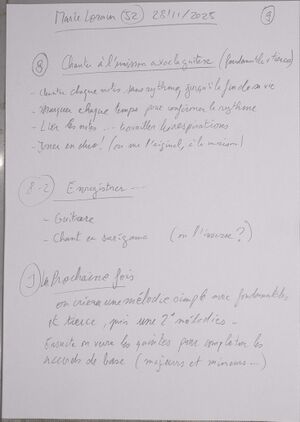 Marie Lorain (52) 28/11/2025 9
8 Chanter à l'unisson avec la guitare (fondamentale + tierce)
- chanter chaque notes sans rythme, jusqu'à la fin de sa vie
- Marquer chaque temps pour confirmer le rythme
- Lier les notes ... travailler les respirations
- Jouer en duo! (ou sur l'original, à la maison)
8-2 Enregistrer ...
- Guitare
- Chant en sarigama (ou l'inverse?)
9 La Prochaine fois
on créera une mélodie simple avec fondamentales
et tierce, puis une 2e mélodies -
Ensuite on verra les quintes pour compléter les
accords de base (majeurs et mineurs ...)